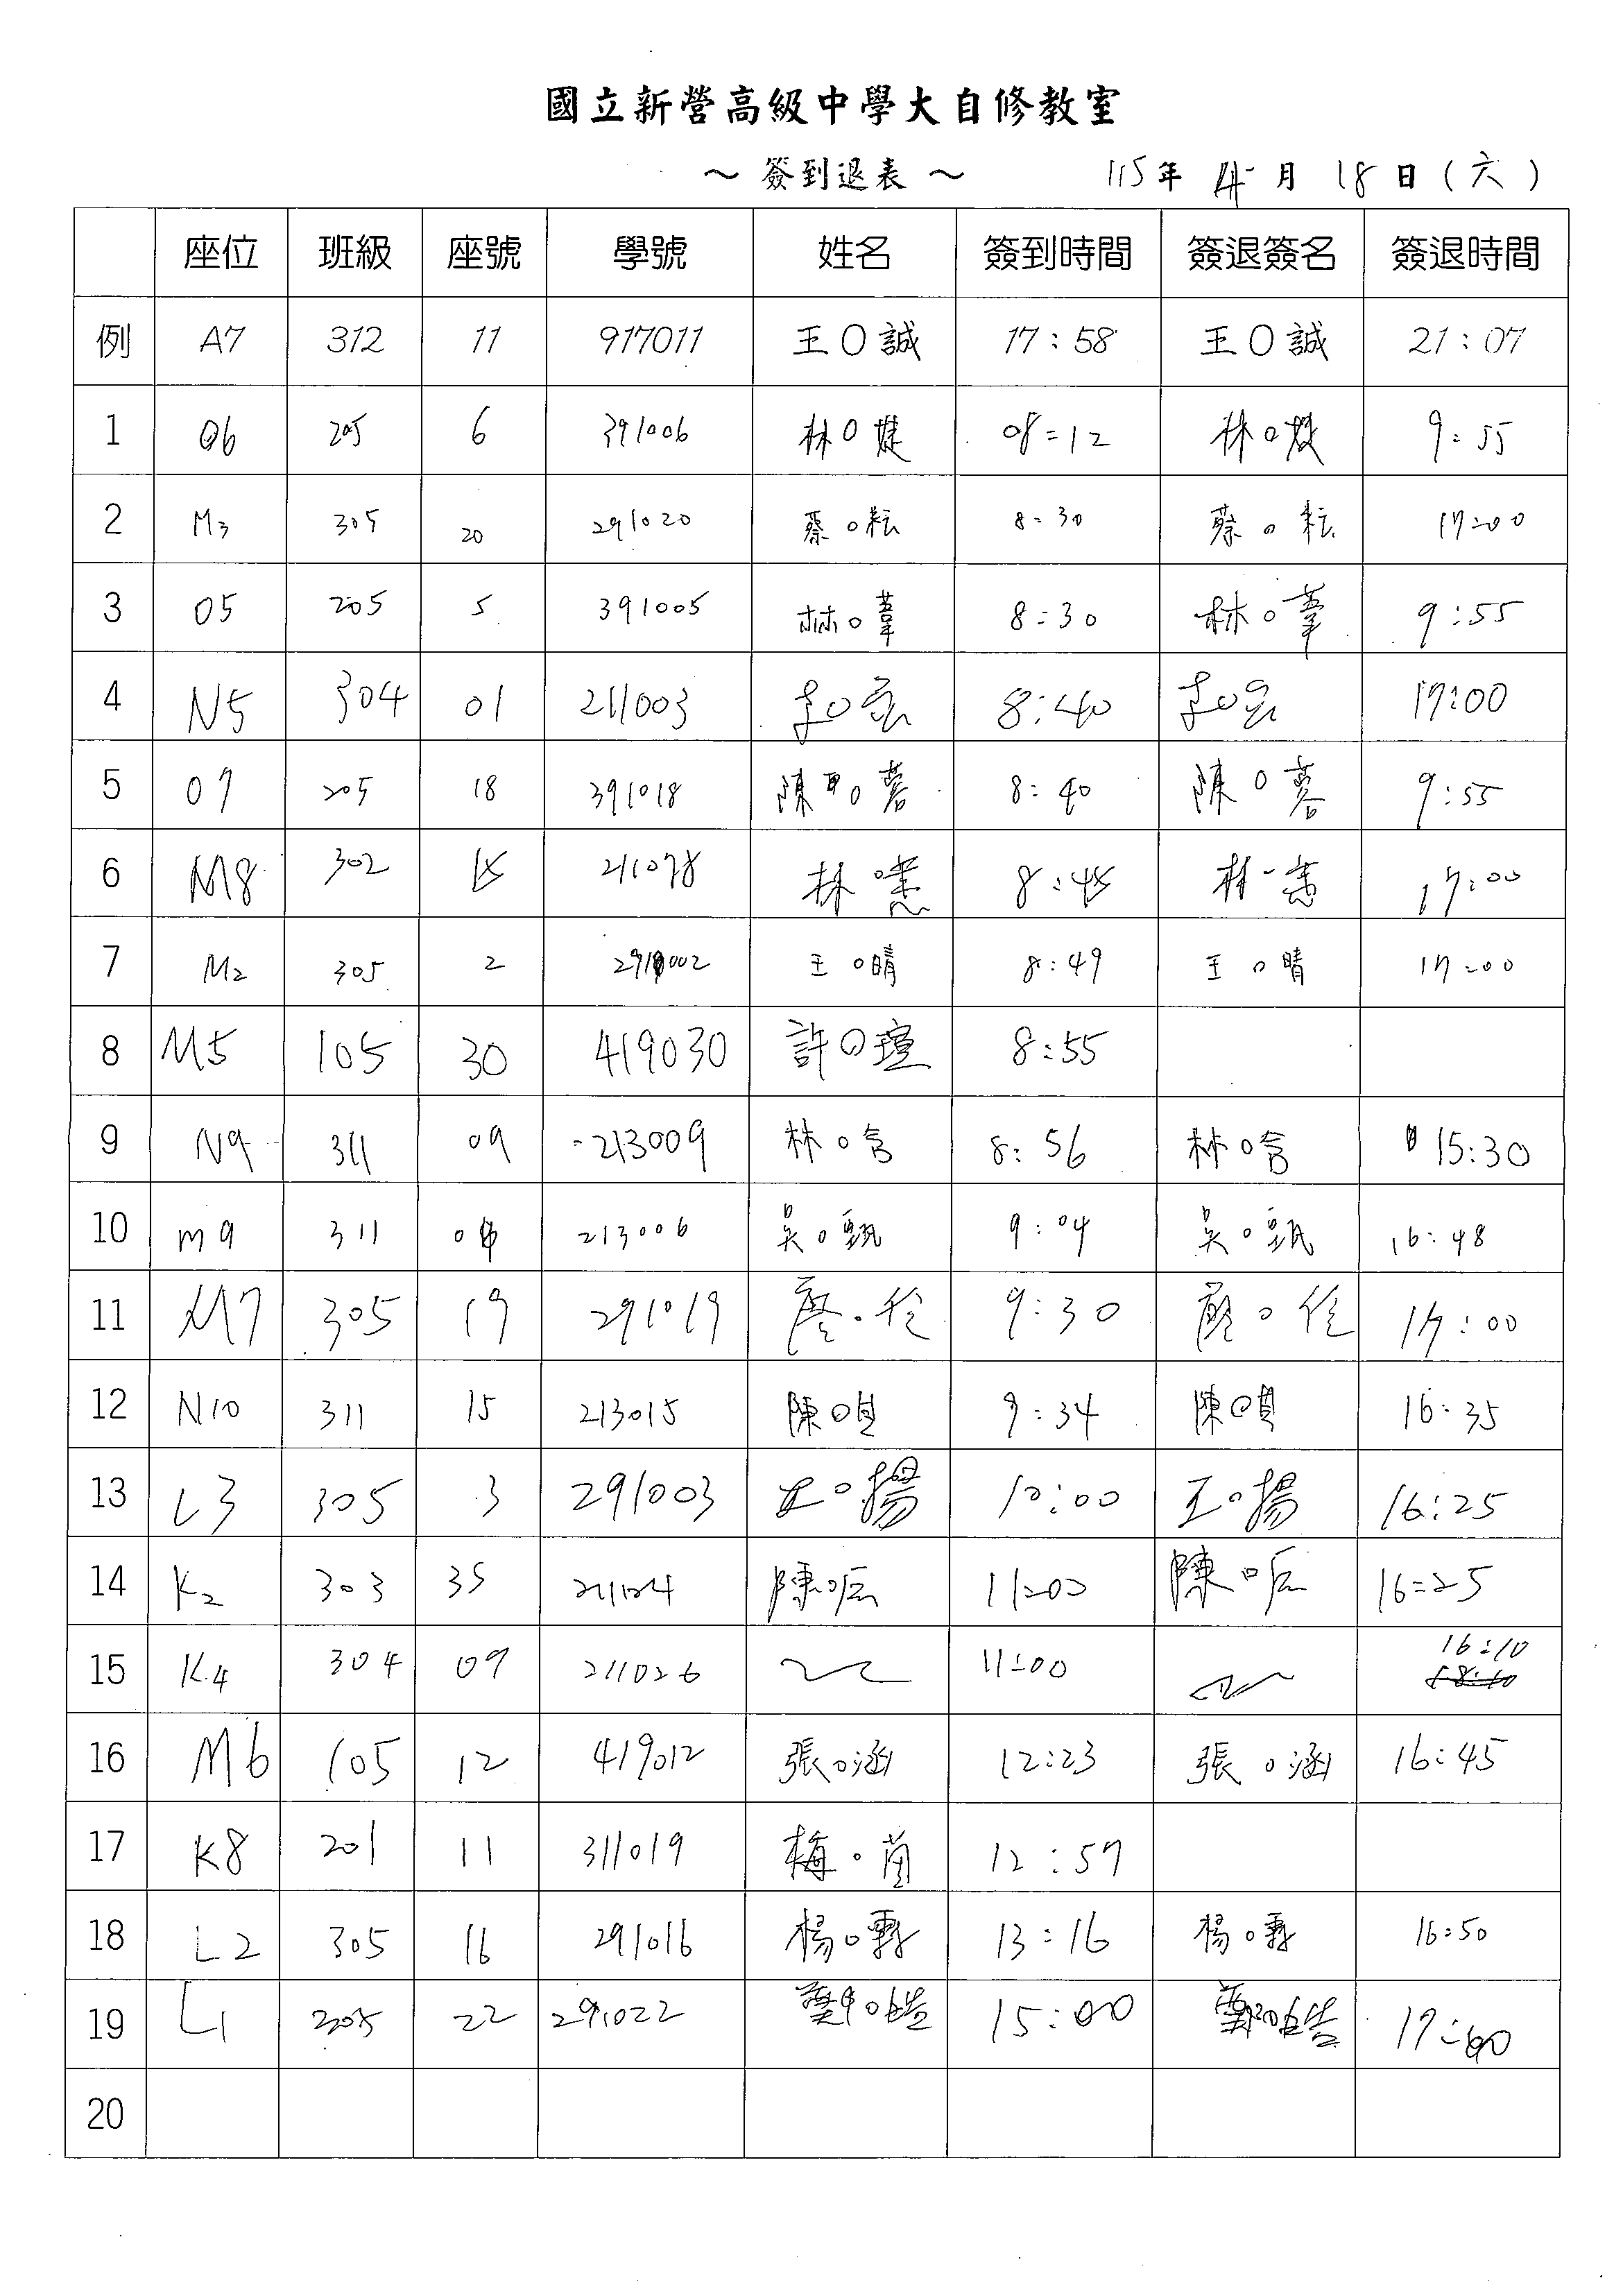 國立新營高級中學大自修教室
～簽到退表～ 115年 4月 18日(六)
座位 班級 座號 學號 姓名 簽到時間 簽退簽名 簽退時間
例 A7 312 11 917011 王O誠 17:58 王O誠 21:07
1 O6 205 6 391006 林O婕 08:12 林O婕 9:55
2 M3 305 20 291020 蔡O耘 8:30 蔡O耘 17:00
3 O5 205 5 391005 林O葦 8:30 林O葦 9:55
4 N5 304 01 211003 李O宸 8:40 李O宸 17:00
5 O7 205 18 391018 陳O蓉 8:40 陳O蓉 9:55
6 M8 302 15 211078 林 8:45 林 17:00
7 M2 305 2 291002 王O晴 8:49 王O晴 17:00
8 M5 105 30 419030 許O瑄 8:55
9 N9 311 09 213009 林O含 8:56 林O含 15:30
10 M9 311 213006 吳O甄 9:04 吳O甄 16:48
11 M7 305 19 291019 廖O佺 9:30 廖O佺 17:00
12 N10 311 15 213015 陳O 9:34 陳O 16:35
13 L3 305 3 291003 王O揚 10:00 王O揚 16:25
14 K2 303 35 陳O 11:00 陳O 16:25
15 K4 304 09 211026 11:00 16:10
16 M6 105 12 419012 張O涵 12:23 張O涵 16:45
17 K8 201 11 311019 梅O 12:57
18 L2 305 16 291016 楊O霖 13:16 楊O霖 16:50
19 L1 305 22 291022 鄭O皓 15:00 鄭O皓 17:00
20